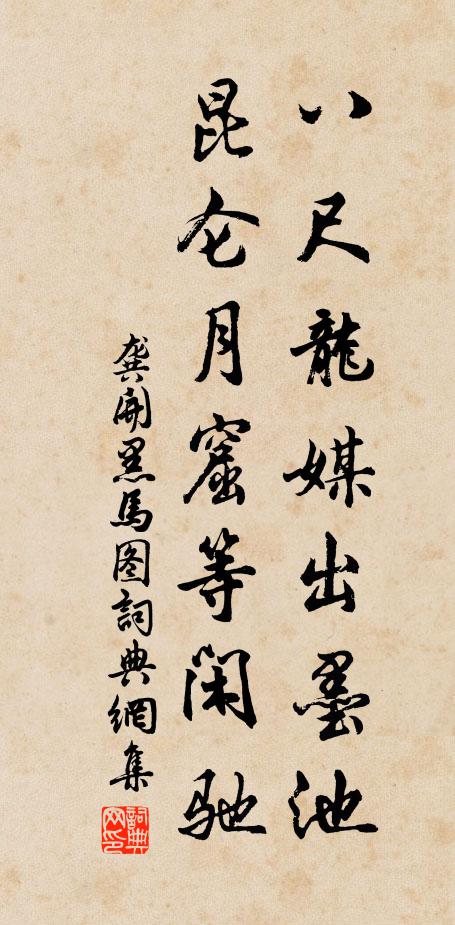 八尺龍媒出墨池
昆仑月窟等闲驰
龚開黑馬图詞典網集
詞典网印